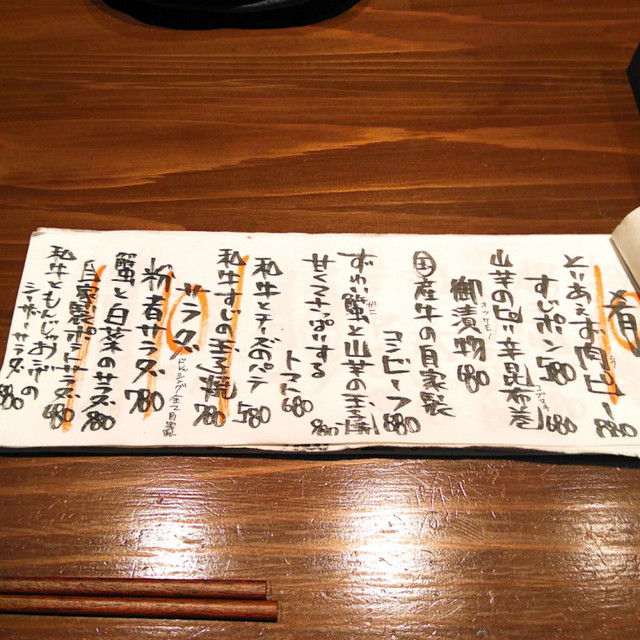 肴
とりあえずお肉ピー 880
すじポン 580
山芋のピリ辛昆布巻 680
コブマキ
御漬物 680
オツケモノ
国産牛の自家製
コンビーフ 880
ずわい蟹と山芋の玉子焼 880
かに
甘くてさっぱりする
トマト 680
和牛とチーズのパテ 580
和牛すじの玉子焼 780
サラダ
ドレッシング全て自家製
粉者サラダ 780
蟹と白菜のサラダ 780
自家製ポテトサラダ 680
和牛ともんじゃおこげの
シーザーサラダ 880